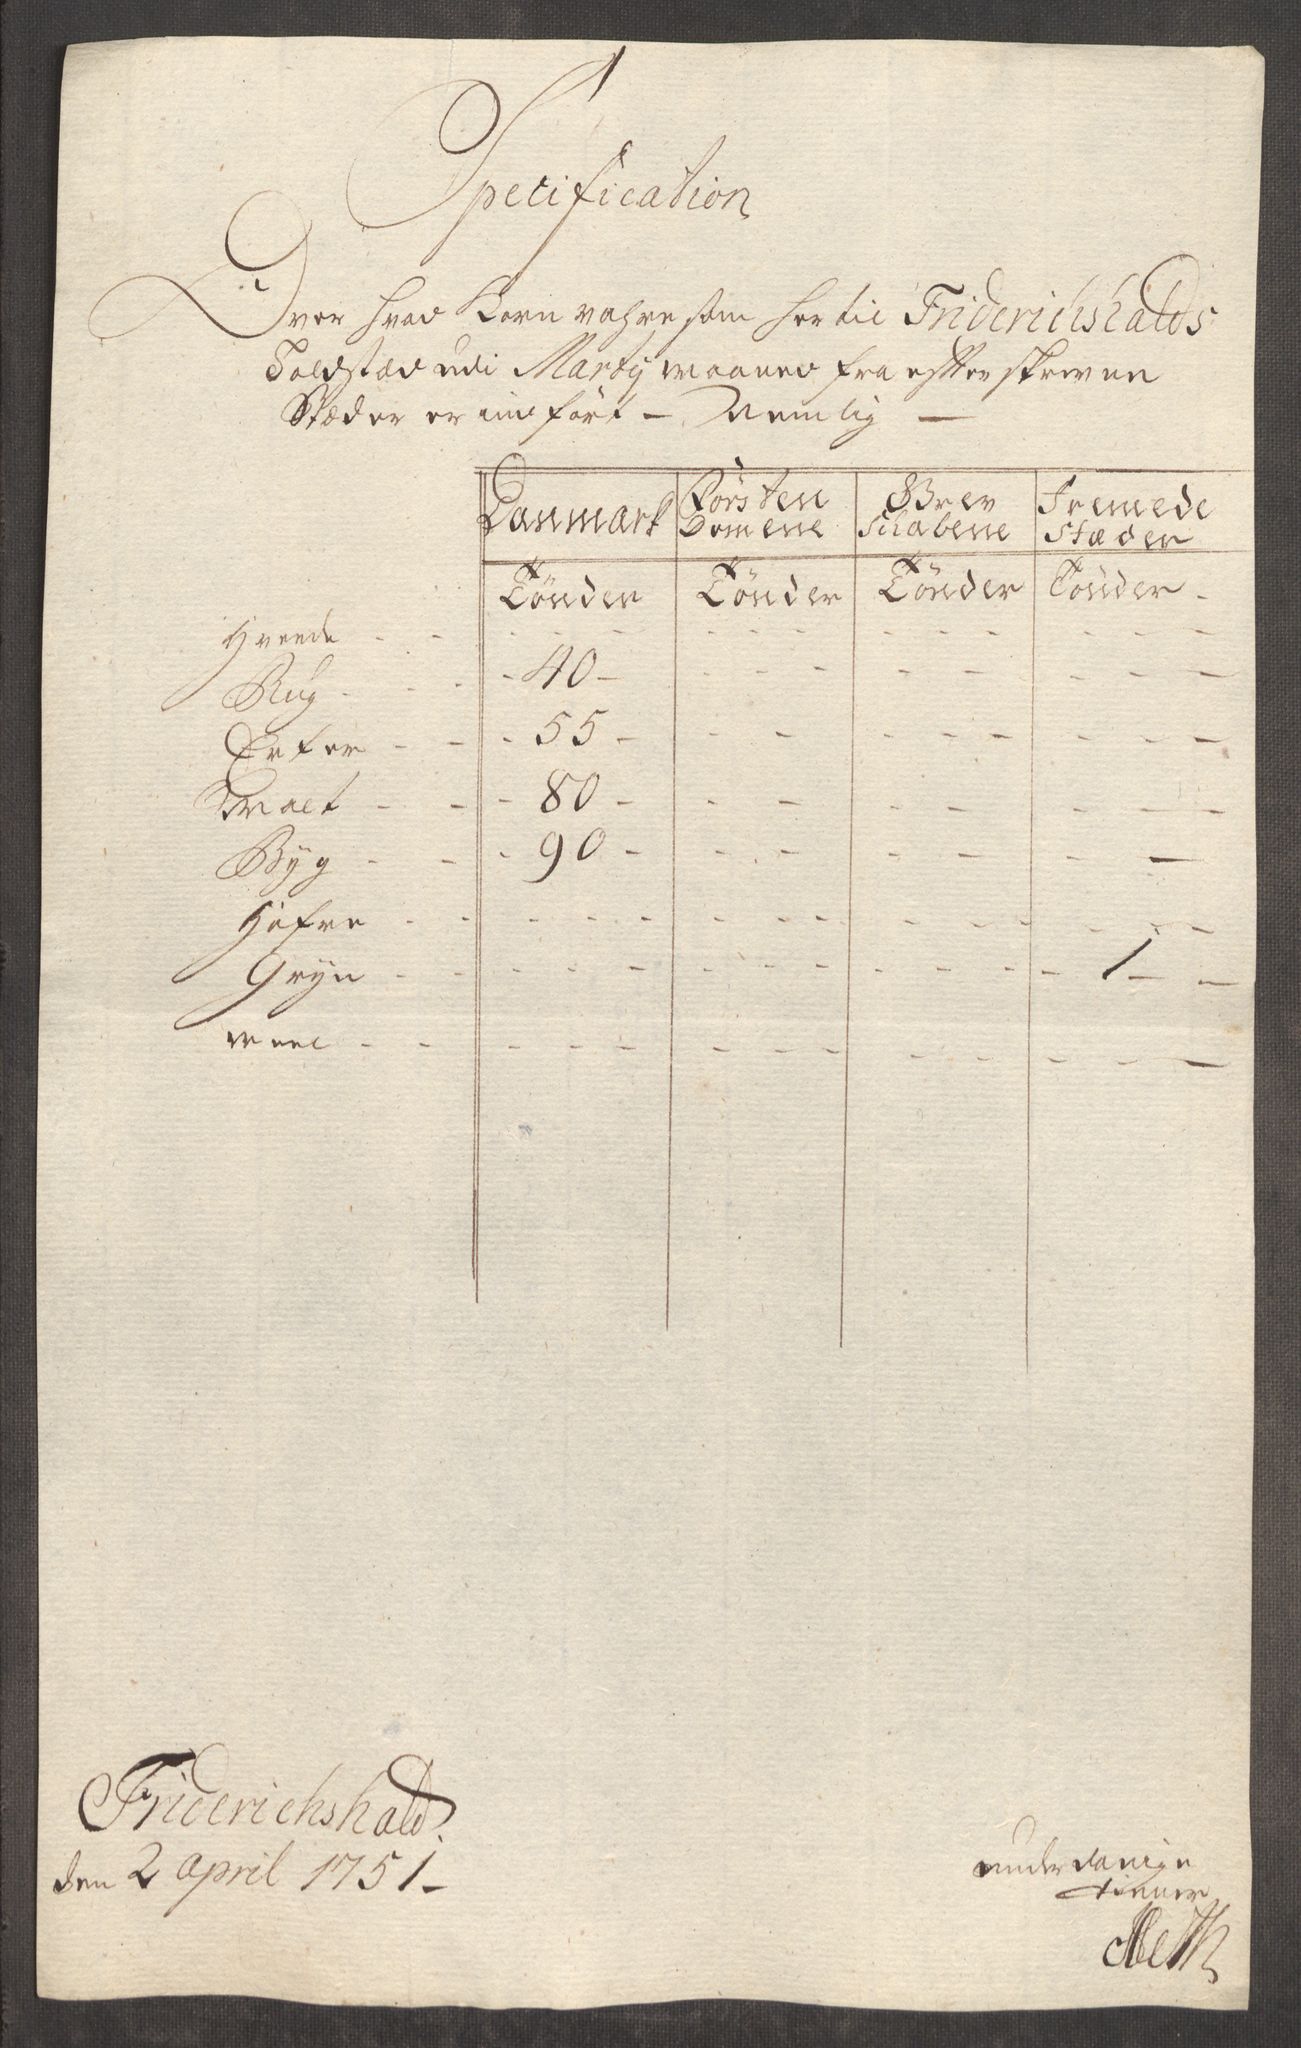 Specification
Over hvad Korn vahre som her til Friderichshalds
Toldstæd udi Marty maaned fra efterskrevne
Stæder er indført - Nemlig -
Danmark Försten Domene Grev schabene Fremede stæder
Tönder Tönder Tönder Tönder -
Hvede - - - - - - - - - - - - - -
Rug - - - 40 - - - - - - - -
Erter - - - 55 - - - - - - - -
Malt - - - 80 - - - - - - - -
Byg - - - 90 - - - - - - -
Hafre - - - - - - - - - - - - - - -
Gryn - - - - - - - - - - - - 1 - -
meel - - - - - - - - - - - - - -
Friderichshald
den 2 april 1751 -
underdanige
tienner